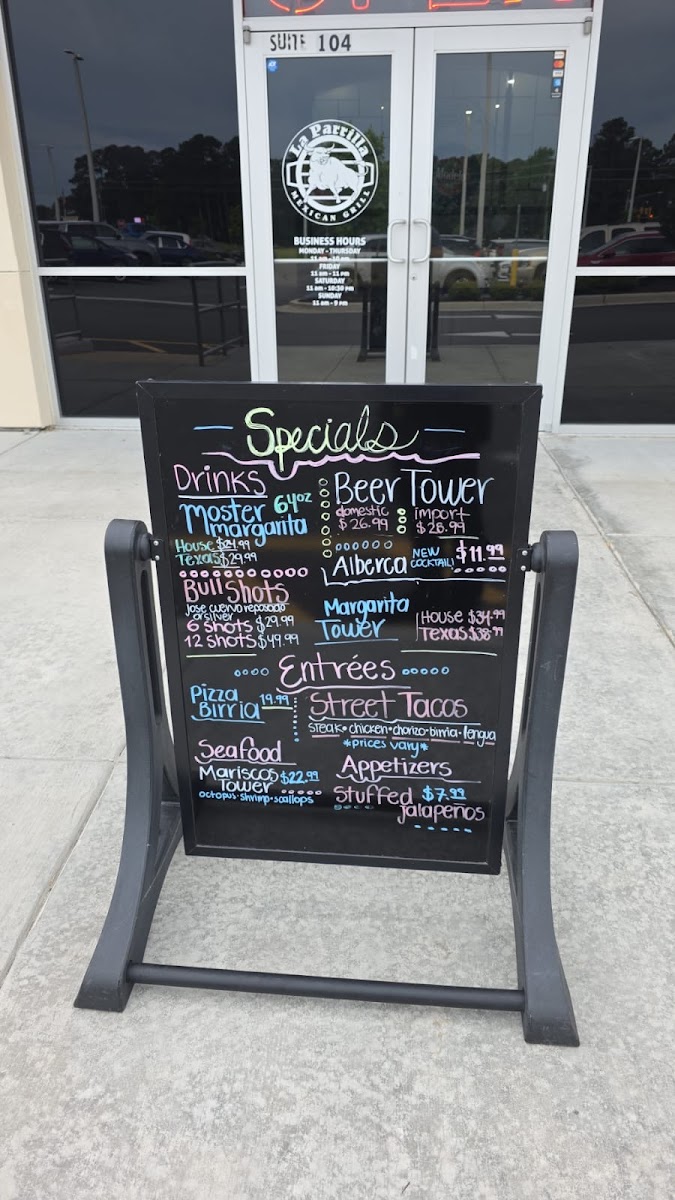 SUITE 104
La Parrilla
MEXICAN GRILL
BUSINESS HOURS
MONDAY - THURSDAY
11 am - 10 pm
FRIDAY
11 am - 11 pm
SATURDAY
11 am - 10:30 pm
SUNDAY
11 am - 9 pm
Specials
Drinks
Moster 64oz
margarita
House $24.99
Texas $29.99
Bull Shots
jose cuervo reposado
or silver
6 shots $29.99
12 shots $49.99
Beer Tower
domestic
$26.99
import
$28.99
Alberca NEW COCKTAIL! $11.99
Margarita
Tower
House $34.99
Texas $38.99
Entrées
Pizza
Birria 19.99
Street Tacos
steak • chicken • chorizo • birria • lengua
*prices vary*
Seafood
Mariscos $22.99
Tower
octopus • shrimp • scallops
Appetizers
Stuffed $7.99
jalapeños